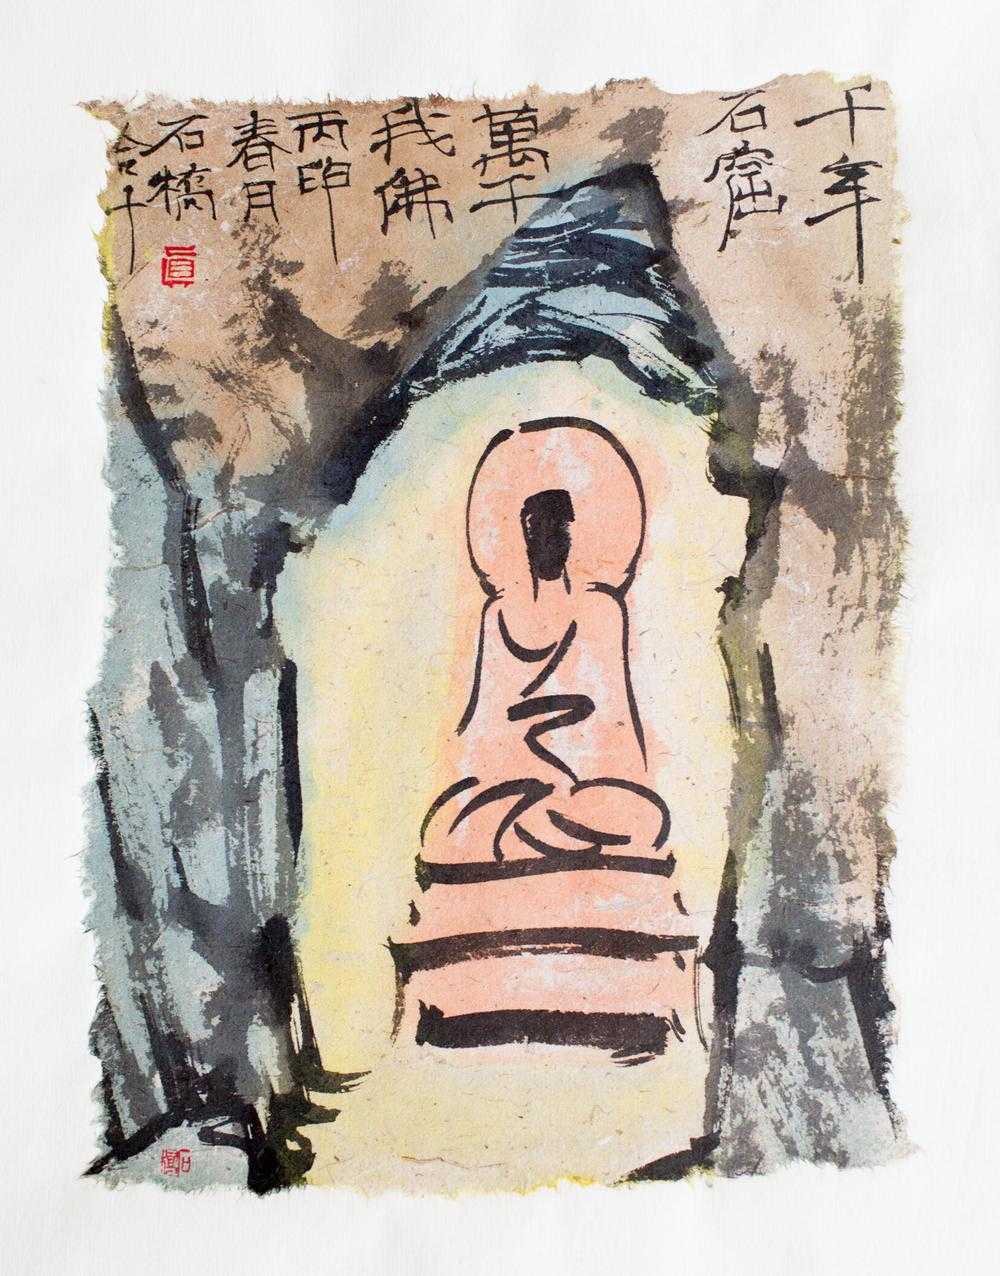 千年
石窟
萬千
我佛
丙申
春月
石橋
合十